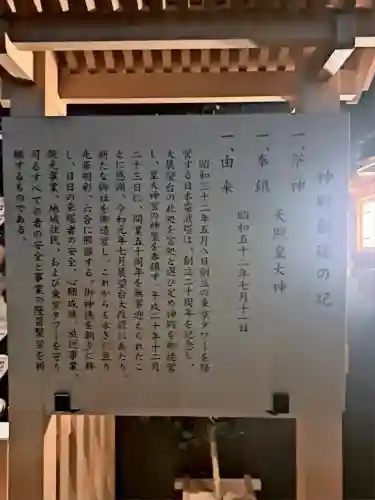 神殿創建の記
一、祭神
天照皇大神
一、奉鎮
昭和五十二年七月十一日
一、由来
昭和三十二年五月八日創立の東京タワーを経
営する日本電波塔は、創立二十周年を記念し、
大展望台の此処を宮処と選び定め神殿を御造営
し、皇大神宮の神璽を奉鎮す。平成二十年十二月
二十三日に、開業五十周年を無事迎えられたこ
とに感謝、令和元年七月展望台大改修にあたり、
新たな御社を御造営し、これからも永きに亘り
光華明彩、六合に照徹する、御神徳を頒りに拝
し、日日の来塔者の安全、心願成就、放送事業、
観光事業、地域住民、および東京タワーを守り
司るすべての者の安全と事業の隆昌繁栄を祈
願するものである。